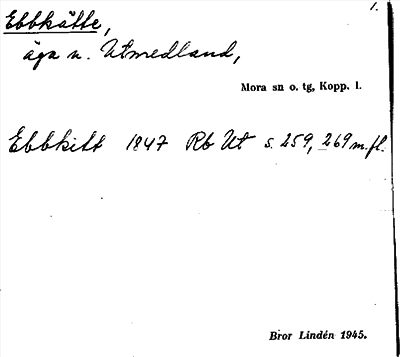 1.
Ebbkätte,
äga n. Utmedland,
Mora sn o. tg, Kopp. l.
Ebbkitt 1847 Rb Ut s. 259, 269 m.fl.
Bror Lindén 1945.